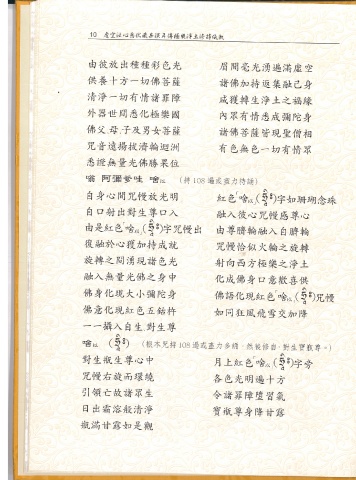 10
由彼放出種種彩色光 眉間毫光湧遍滿虛空
供養十方一切佛菩薩 諸佛加持返集融己身
清淨一切有情諸罪障 咸獲轉生淨土之福緣
外器世間悉化極樂國 內眾有情悉成彌陀身
佛父母子及男女菩薩 諸佛菩薩皆現聖僧相
咒音遠揚 有色無色一切有情眾
悉證無量光佛勝果位
嗡 阿彌爹哇 啥 (持108遍或盡力持誦)
自身心間咒幔放光明 紅色 啥 字如珊瑚念珠
自口射出對生尊口入 融入彼心咒幔感尊心
由是紅色 啥 字咒幔出 由尊臍輪融入自臍輪
復融於心獲加持成就 咒幔恰似火輪之旋轉
旋轉之間湧現諸色光 射向西方極樂之淨土
融入無量光佛之身中 化成佛身口意歡喜供
佛身化現大小彌陀身 佛語化現紅色 啥 咒幔
佛意化現紅色五鈷杵 如同狂風飛雪交加降
一一攝入自生對生尊
啥 (根本咒持108遍或盡力多誦,然後修自、對生寶瓶尊。)
對生瓶生尊心中 月上紅色 啥 字旁
咒幔右旋而環繞 各色光明遍十方
引領亡故諸眾生 令諸罪障墮習氣
日出霜溶般清淨 寶瓶尊身降甘露
瓶滿甘露如是觀